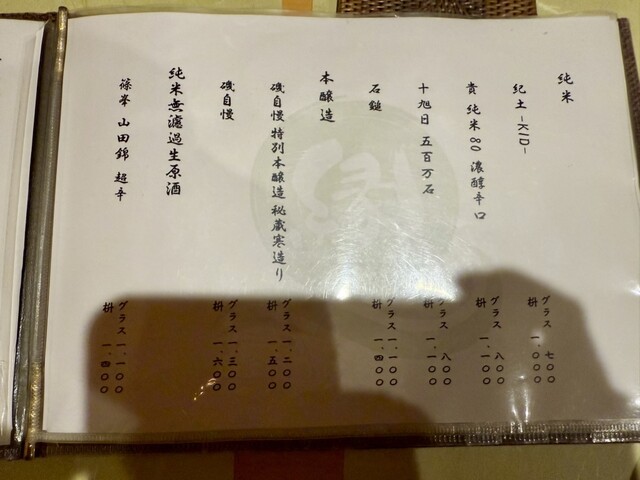 純米
紀土-KID-
グラス 七〇〇
枡 一、〇〇〇
貴 純米80 濃醇辛口
グラス 八〇〇
枡 一、一〇〇
十旭日 五百万石
グラス 八〇〇
枡 一、一〇〇
石鎚
グラス 一、一〇〇
枡 一、四〇〇
本醸造
磯自慢 特別本醸造 秘蔵寒造り
グラス 一、二〇〇
枡 一、五〇〇
磯自慢
グラス 一、三〇〇
枡 一、六〇〇
純米無濾過生原酒
篠峯 山田錦 超辛
グラス 一、一〇〇
枡 一、四〇〇